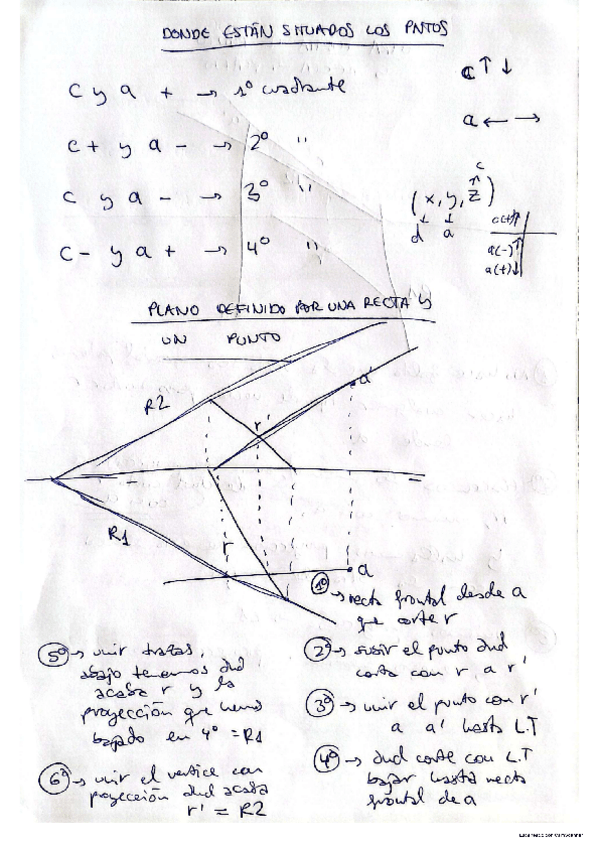 DONDE ESTÁN SITUADOS LOS PNTOS
C y a + → 1º cuadrante
C↑↓
C + y a - → 2º "
a ← →
C y a - → 3º "
C - y a + → 4º "
c
(x, y, z)
d a
c(+)↑
a(-)↑
a(+)↓
PLANO DEFINIDO POR UNA RECTA Y
UN PUNTO
R2
r'
a'
R1
r
a
1º → recta frontal desde a
que corte r
2º → subir el punto dnd
corta con r a r'
3º → unir el punto con r'
a a' hasta L.T
4º → dnd corte con L.T
bajar hasta recta
frontal de a
5º → unir trazas,
abajo tenemos dnd
acaba r y la
proyección que hemos
bajado en 4º = R1
6º → unir el vertice con
proyección dnd acaba
r' = R2